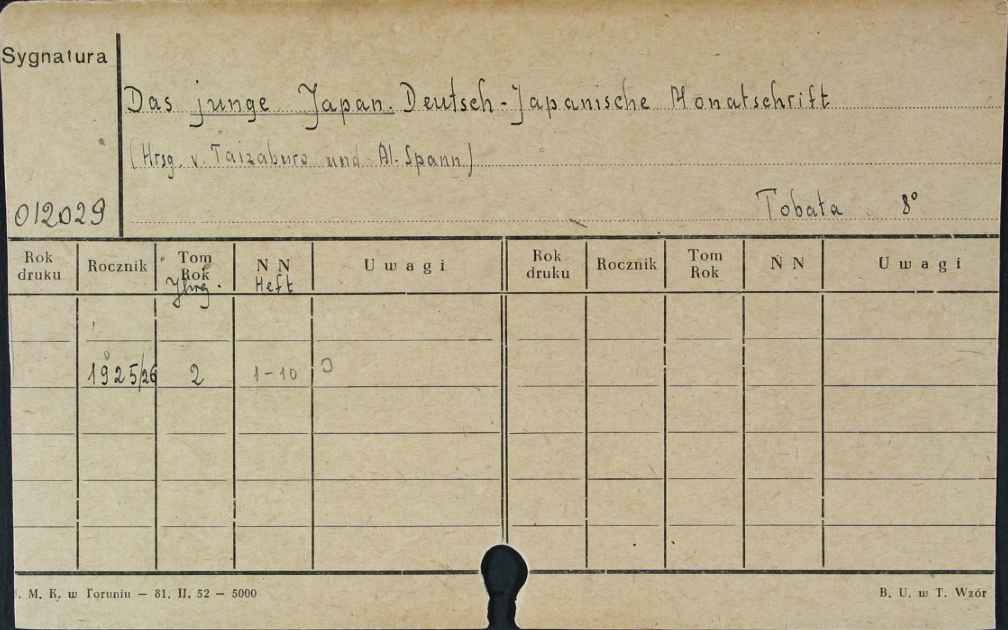 Sygnatura
Das junge Japan. Deutsch-Japanische Monatschrift
(Hrsg. v. Taizaburo und Al. Spann)
012029
Tobata 8°
Rok druku Rocznik Tom Rok N N Uwagi Rok druku Rocznik Tom Rok N N Uwagi
Jhrg. Heft
1925/26 2 1-10
M. K. w Toruniu — 81. II. 52 — 5000
B. U. w T. Wzór